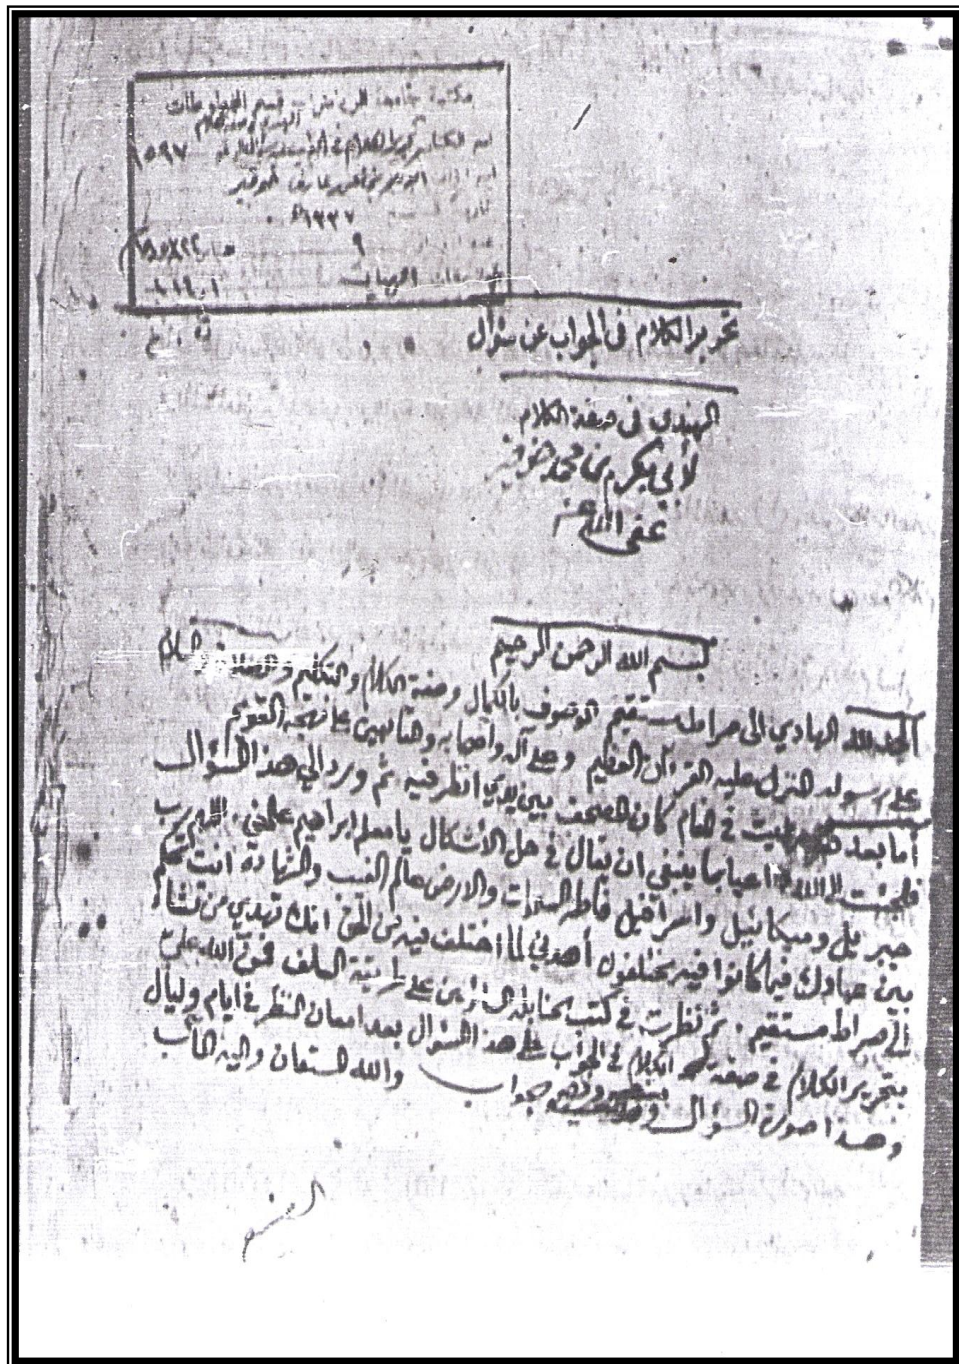 مكتبة جامعة الرياض قسم المخطوطات
اسم الكتاب تحرير الكلام في ١٥٩٧
١٣٣٧
٩
تحرير الكلام فى الجواب عن سؤال
الهندي في صفة الكلام
لأبي بكر بن محمد خوقير
عفى الله عنه
بسم الله الرحمن الرحيم
الحمد لله الهادي الى صراط مستقيم الموصوف بالكمال وصفة الكلام والتكليم والصلاة والسلام
على رسوله المنزل عليه القرآن العظيم وعلى آله وأصحابه والتابعين على نهجه القويم
أما بعد في المنام كأن المصحف بين يدي انظر فيه ثم ورد الي هذا السؤال
فلجئت الى الله داعيا بما ينبغي ان يقال في حل الأشكال يا معلم ابراهيم علمني . اللهم رب
جبريل وميكائيل واسرافيل فاطر السموات والارض عالم الغيب والشهادة انت تحكم
بين عبادك فيما كانوا فيه يختلفون أهدني لما اختلف فيه من الحق انك تهدي من تشاء
الى صراط مستقيم . ثم نظرت في كتب الحنابلة على طريقة السلف فمن الله علي
بتحرير الكلام في صفة الكلام في الجواب على هذا السؤال بعد امعان النظر في ايام وليال
وهذا صورة السؤال جواب والله المستعان واليه المآب